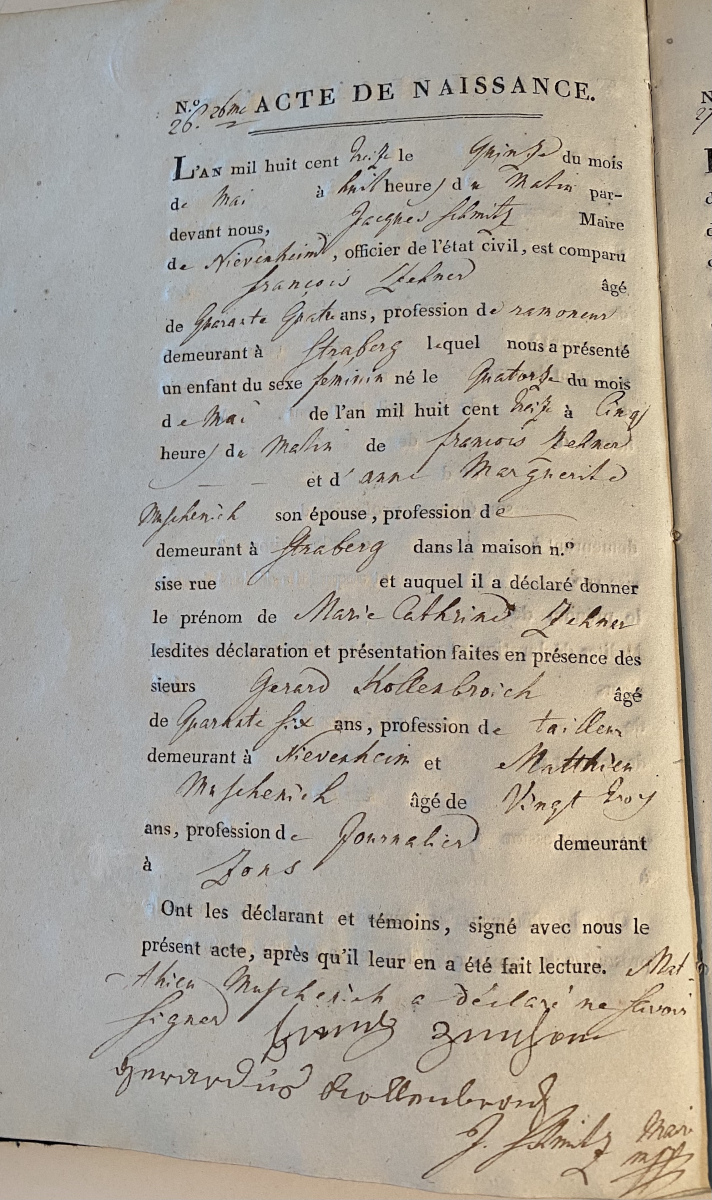 N.o 26. 26me ACTE DE NAISSANCE.
L'AN mil huit cent treize le Quinze du mois
de Mai à huit heures du Matin par-
devant nous, Jacques Schmitz Maire
de Nievenheim, officier de l'état civil, est comparu
françois Zehner âgé
de Quarante Quatre ans, profession de ramoneur
demeurant à Straberg lequel nous a présenté
un enfant du sexe feminin né le Quatorze du mois
de Mai de l'an mil huit cent treize à Cinq
heures du Matin de francois Zehner
et d'anne Marguerite
Muschenich son épouse, profession de
demeurant à Straberg dans la maison n.o
sise rue et auquel il a déclaré donner
le prénom de Marie Cathrine Zehner
lesdites déclaration et présentation faites en présence des
sieurs Gerard Kollenbroich âgé
de Quarante six ans, profession de tailleur
demeurant à Nievenheim et Matthieu
Muschenich âgé de Vingt trois
ans, profession de Journalier demeurant
à Zons
Ont les déclarant et témoins, signé avec nous le
présent acte, après qu'il leur en a été fait lecture. Mat-
thieu Muschenich a déclaré ne savoir
signer
gerardus Kollenbroich
J. Schmitz Maire